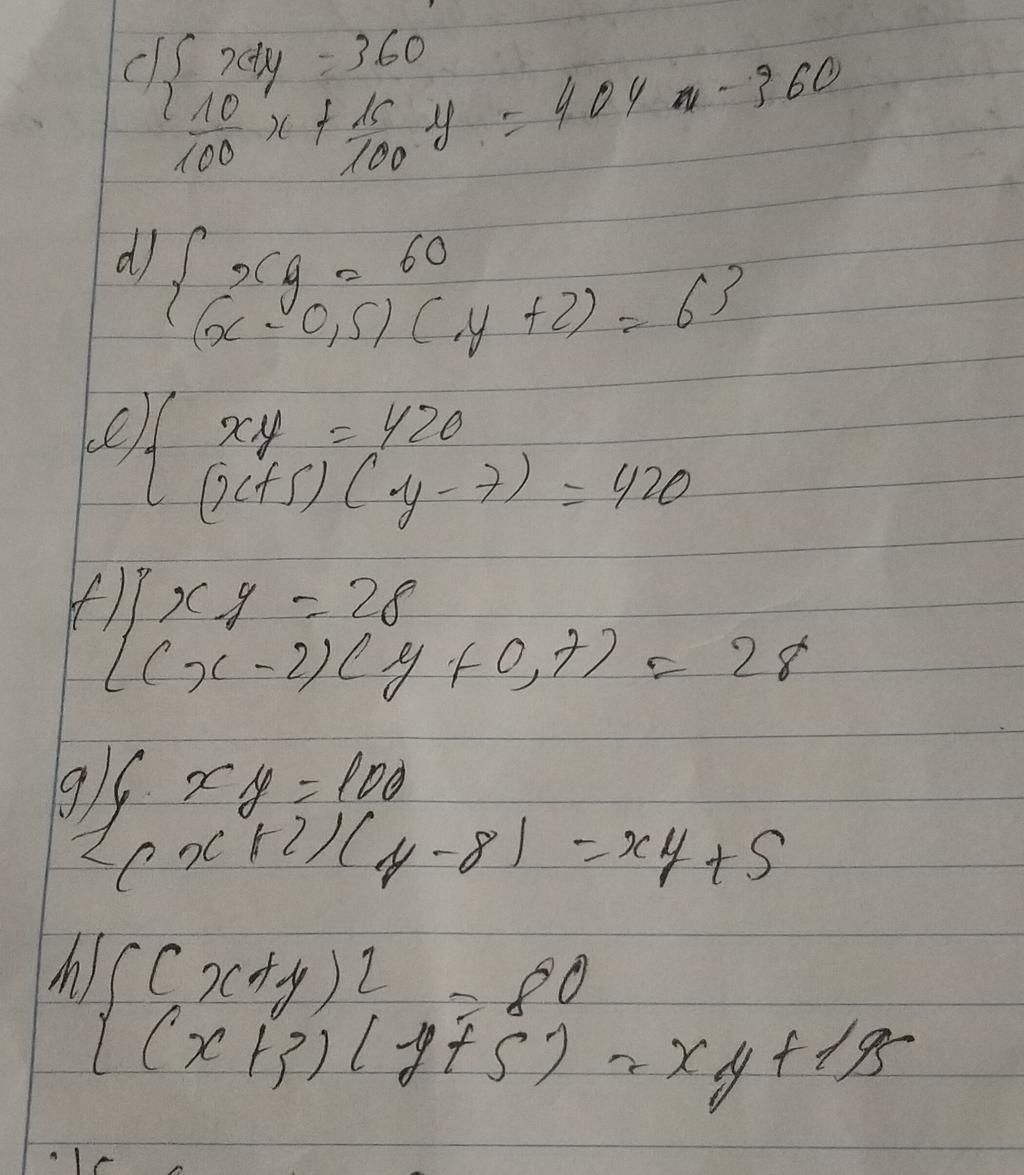 c) { x+y = 360
10/100 x + 15/100 y = 404 - 360
d) { xy = 60
(x - 0,5) ( y + 2) = 63
e) { xy = 420
(x+5) ( y - 7) = 420
f) { x y = 28
(x - 2) ( y + 0,7) = 28
g) { x y = 100
( x + 2) ( y - 8) = xy + 5
h) { ( x+y ) 2 = 80
(x + 3) ( y + 5) = x y + 195